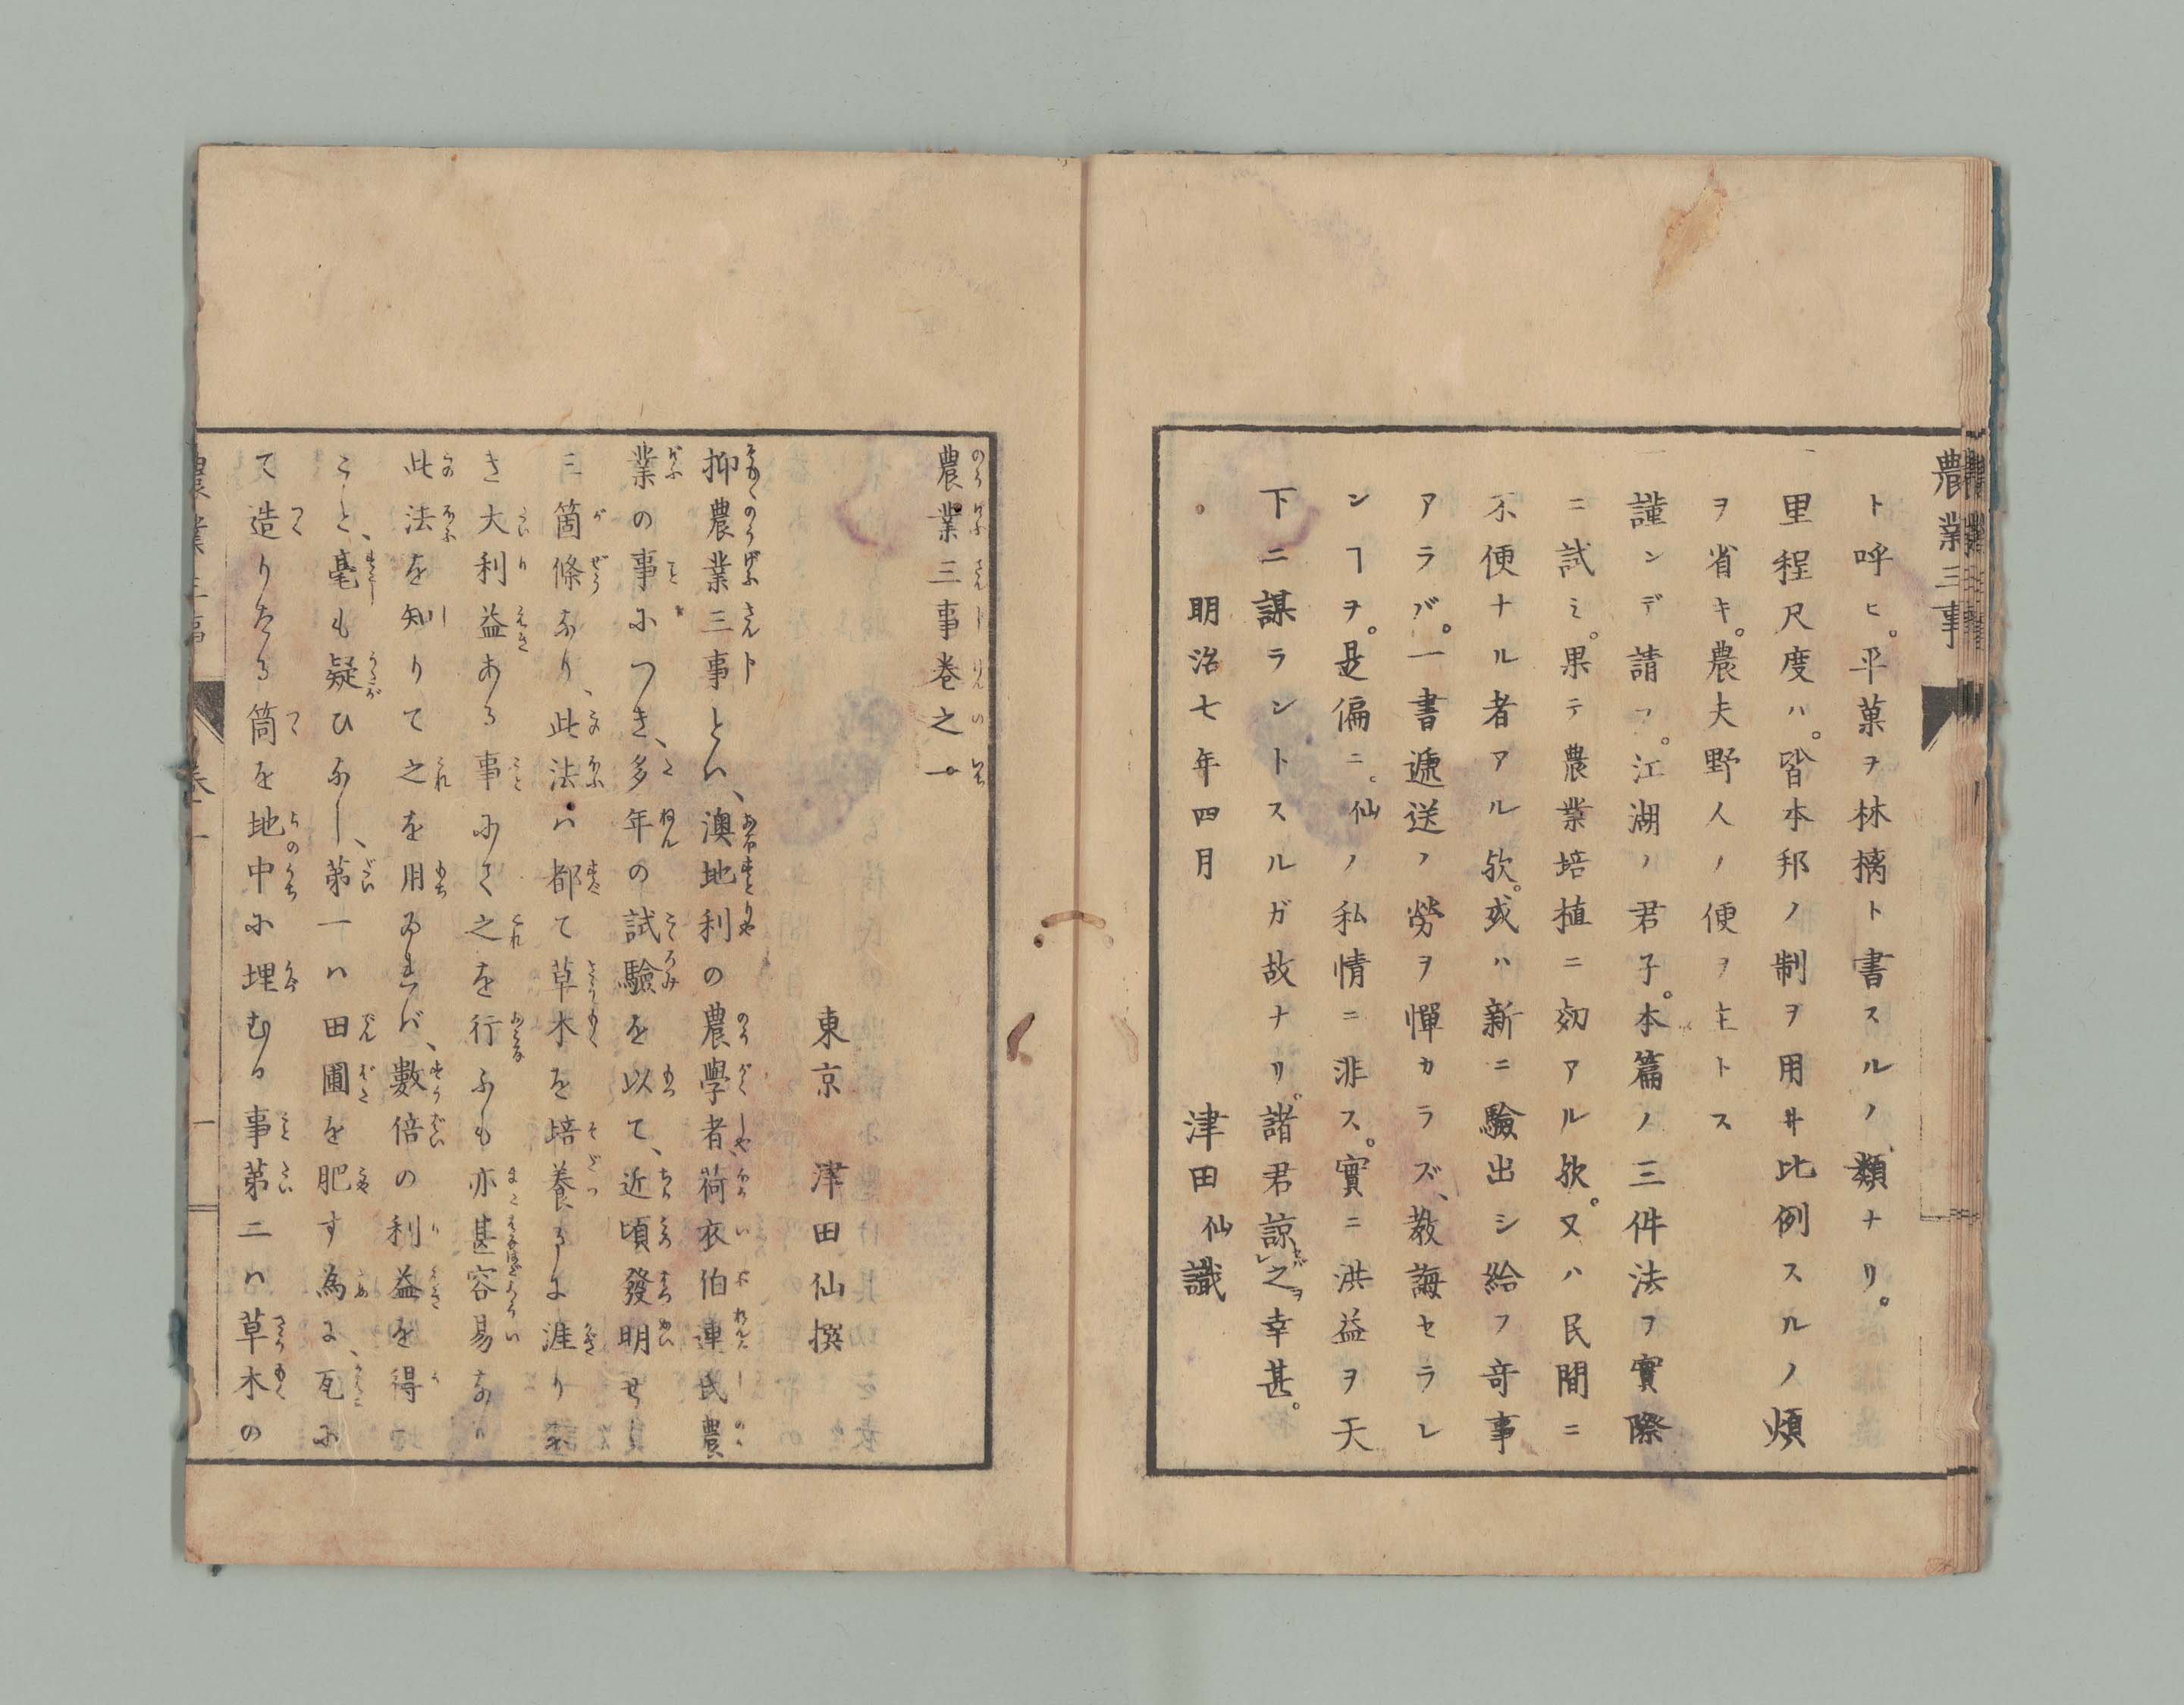 農業三事
ト呼ヒ。平菓ヲ林檎ト書スルノ類ナリ。
一里程尺度ハ。皆本邦ノ制ヲ用井比例スルノ煩
ヲ省キ。農夫野人ノ便ヲ主トス
謹ンデ請フ。江湖ノ君子。本篇ノ三件法ヲ實際
ニ試ミ。果テ農業培植ニ効アル欤。又ハ民間ニ
不便ナル者アル欤。或ハ新ニ驗出シ給フ竒事
アラバ。一書遞送ノ勞ヲ憚カラズ、教誨セラレ
ンヿヲ。是偏ニ。仙ノ私情ニ非ス。實ニ洪益ヲ天
下ニ謀ラントスルガ故ナリ。諸君諒之幸甚。
明治七年四月 津田仙識
農業三事巻之一
東京 津田仙撰
抑農業三事とハ、澳地利の農學者、荷衣伯連氏農
業の事につき、多年の試驗を以て、近頃發明せし
三箇條なり、此法ハ都て草木を培養るに涯りな
き大利益ある事にて之を行ふも亦甚容易なり
此法を知りて之を用ゐれバ、數倍の利益を得
こと、毫も疑ひなし、第一ハ田圃を肥す為に、瓦に
て造りたる筒を地中に埋むる事第二ハ草木の
農業三事 巻一 一